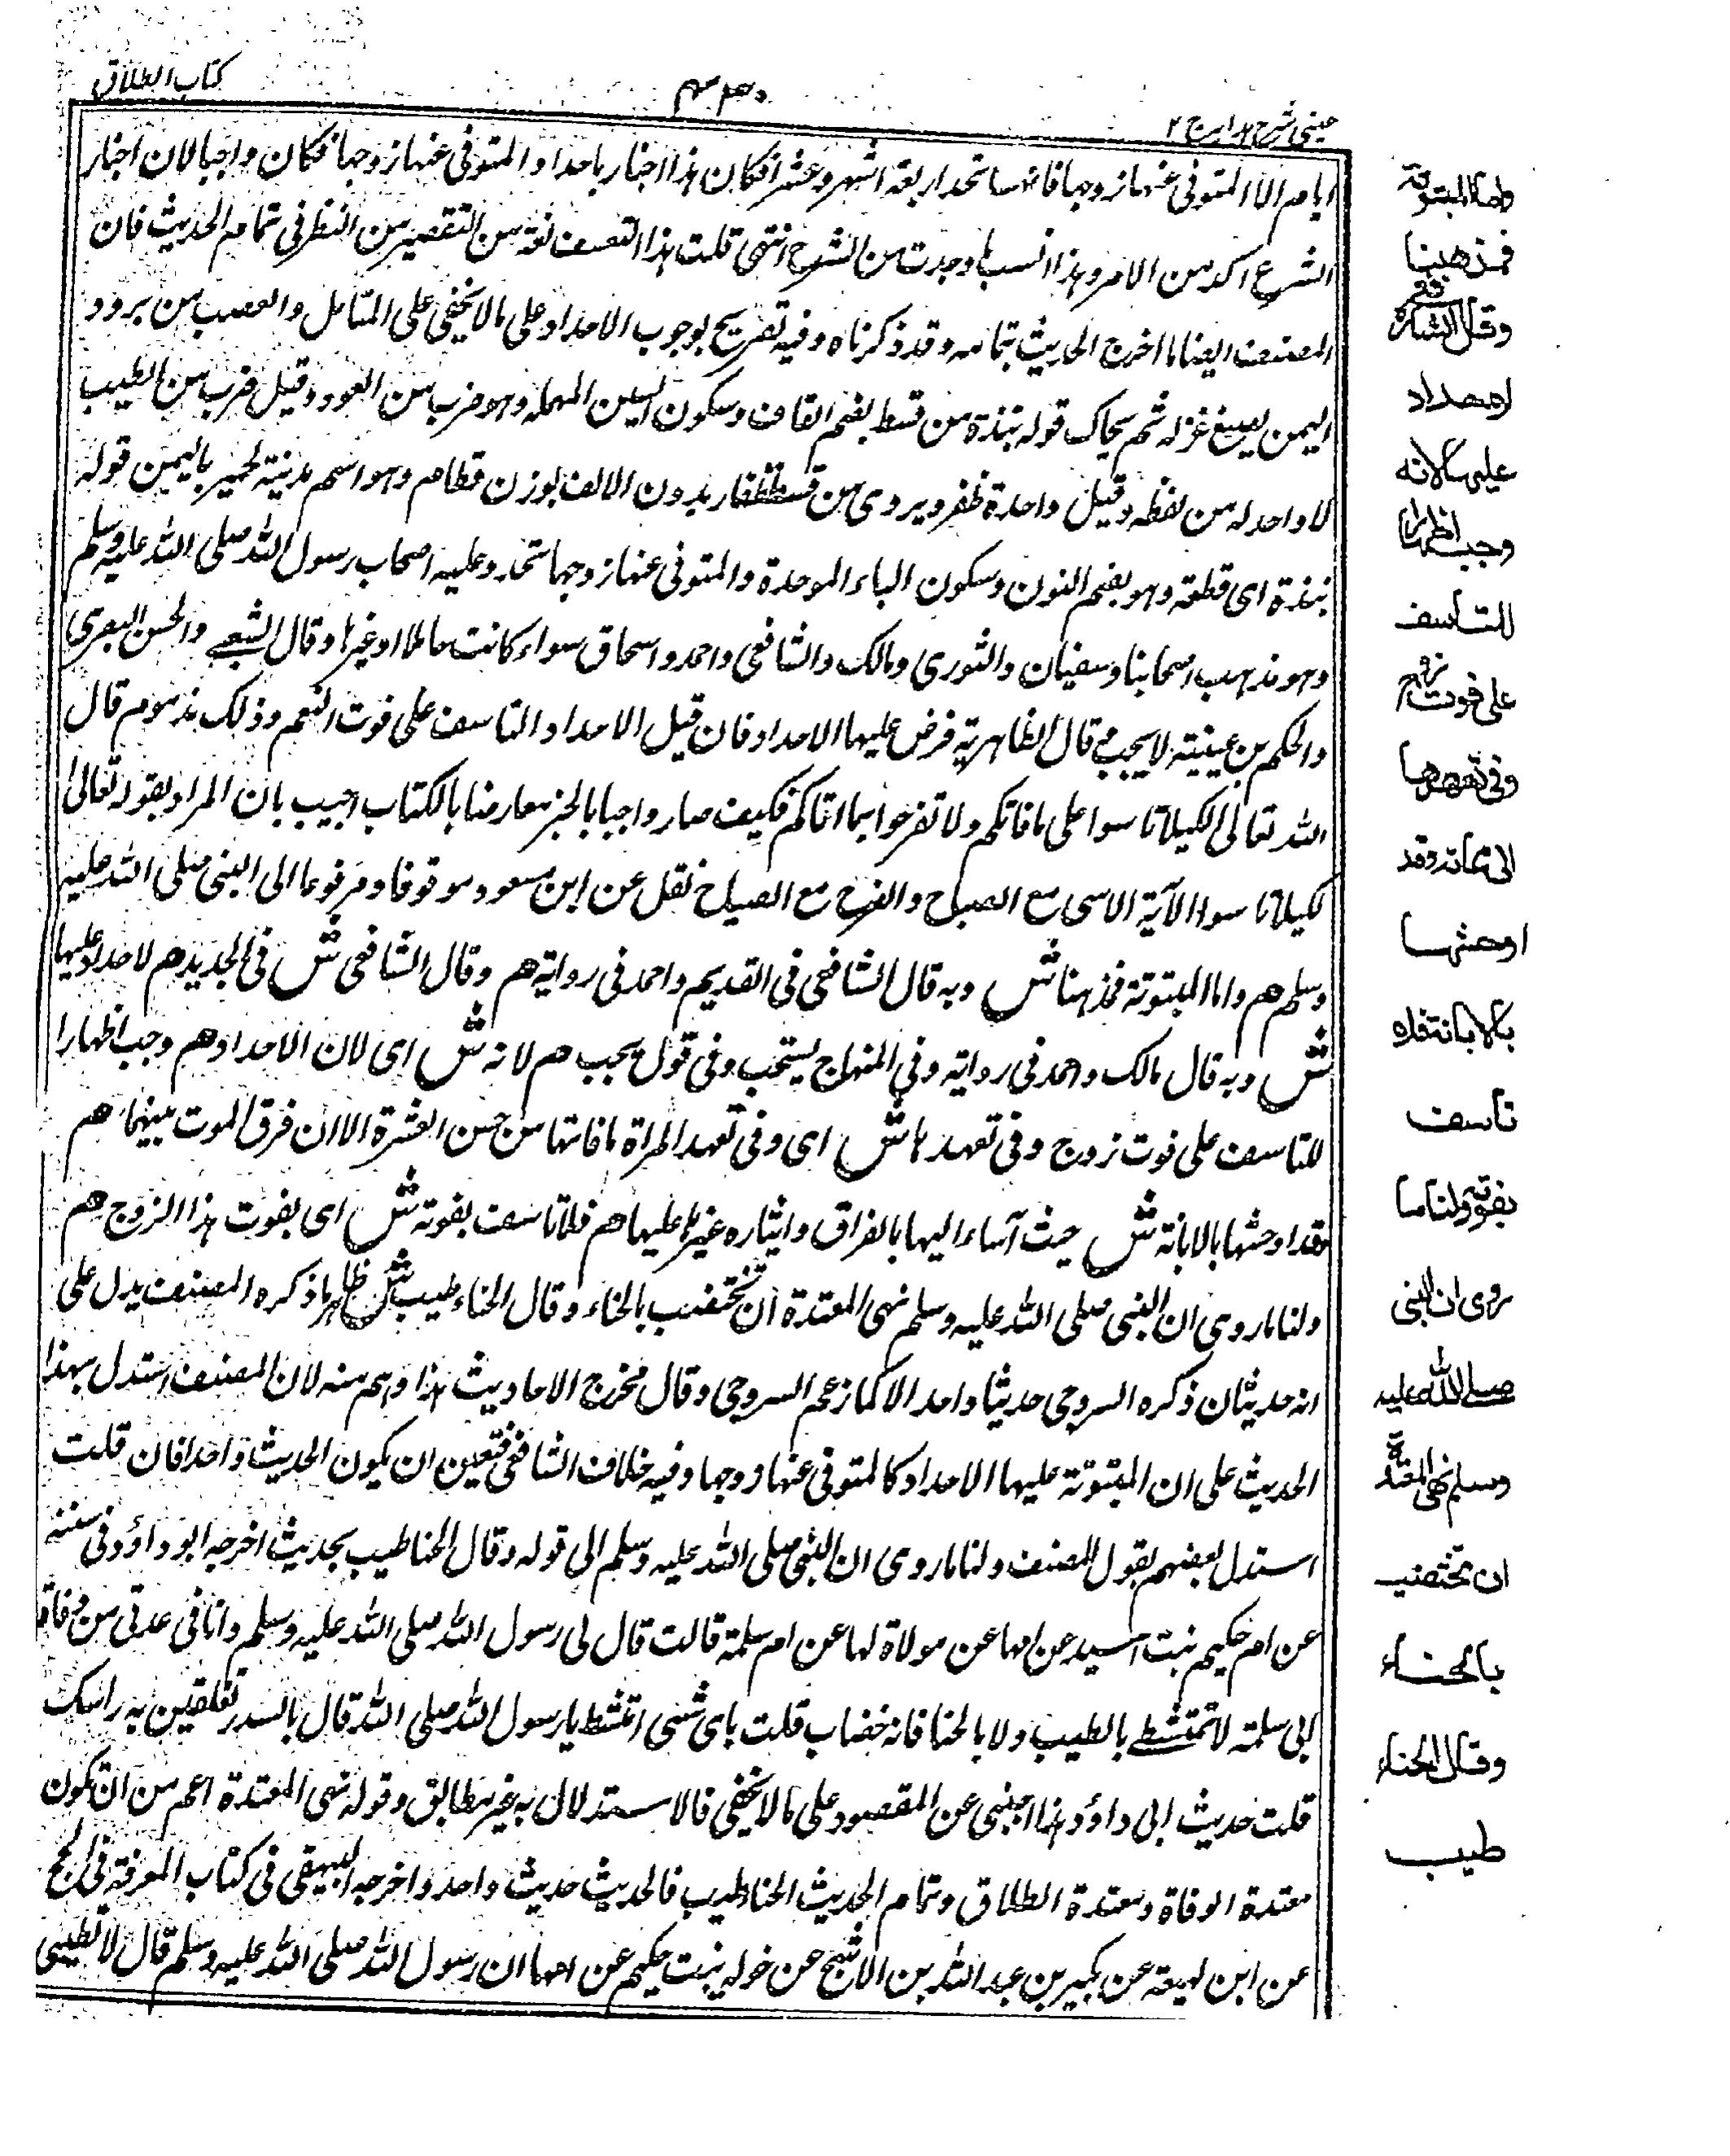 عینی شرح هدایه ج ۲
كتاب الطلاق
ايام الا المتوفى عنها زوجها فانها تحد اربعة اشهر وعشرا فكان هذا اخبار باحداد المتوفى عنها زوجها فكان واجبا لان اخبار
الشرع اكد من الامر وهذا انسب ما وجدت من الشرح انتهى قلت هذا التعسف نقه من التقصير من النظر فى تمام الحديث فان
المصنف ايضا ما اخرج الحديث بتمامه وقد ذكرناه وفيه تصريح بوجوب الاحداد على ما لا يخفى على المتامل والعصب من برود
اليمن يصبغ غزله ثم يحاك قوله نبذة من قسط بضم القاف وسكون السين المهملة وهو ضرب من العود وقيل ضرب من الطيب
لا واحد له من لفظه وقيل واحدة ظفر ويروى من قسط ظفار بدون الالف بوزن قطام وهو اسم مدينة لحمير باليمن قوله
نبذة اى قطعة وهو بضم النون وسكون الباء الموحدة والمتوفى عنها زوجها تحد وعليه اصحاب رسول الله صلى الله عليه وسلم
وهو مذهب اصحابنا وسفيان والثورى ومالك والشافعى واحمد واسحاق سواء كانت حاملا او غيرها وقال الشعبى والحسن البصرى
والحكم بن عيينة لا يجب م قال الظاهرية فرض عليها الاحداد فان قيل الاحداد التاسف على فوت النعم وذلك مذموم قال
الله تعالى لكيلا تاسوا على ما فاتكم ولا تفرحوا بما اتاكم فكيف صار واجبا بالخبر معارضا بالكتاب اجيب بان المراد بقوله تعالى
لكيلا تاسوا الآية الاسى مع الصياح والفرح مع الصياح نقل عن ابن مسعود موقوفا ومرفوعا الى النبى صلى الله عليه
وسلم هم واما المبتوتة فمذهبنا ش وبه قال الشافعى فى القديم واحمد فى رواية هم وقال الشافعى ش فى الجديد هم لا حداد عليها
ش وبه قال مالك واحمد فى رواية وفى المنهاج يستحب وفى قول يجب هم لانه ش اى لان الاحداد هم وجب اظهارا
للتاسف على فوت زوج وفى تعهدها ش اى وفى تعهد المراة ما فاتها من حسن العشرة الا ان فرق الموت بينهما هم
وقد اوحشها بالابانة ش حيث آساء اليها بالفراق وايثاره غيرها عليها هم فلا تاسف بفوته ش اى بفوت هذا الزوج هم
ولنا ما روى ان النبى صلى الله عليه وسلم نهى المعتدة ان تختضب بالحناء وقال الحناء طيب ش ظاهر ما ذكره المصنف يدل على
انه حديثان ذكره السروجى حديثا واحدا لا كما زعم السروجى وقال مخرج الاحاديث هذا وهم منه لان المصنف استدل بهذا
الحديث على ان المبتوتة عليها الاحداد كالمتوفى عنها زوجها وفيه خلاف الشافعى فتعين ان يكون الحديث واحدا فان قلت
استدل بعضهم بقول المصنف ولنا ما روى ان النبى صلى الله عليه وسلم الى قوله وقال الحنا طيب بحديث اخرجه ابو داؤد فى سننه
عن ام حكيم بنت اسيد عن امها عن مولاة لها عن ام سلمة قالت قال لى رسول الله صلى الله عليه وسلم وانا فى عدتى من وفاة
ابى سلمة لا تمتشطى بالطيب ولا بالحنا فانه خضاب قلت باى شئ امتشط يا رسول الله صلى الله قال بالسدر تغلقين به راسك
قلت حديث ابى داؤد هذا اجنبى عن المقصود على ما لا يخفى فالاستدلال به غير مطابق وقوله نهى المعتدة اعم من ان تكون
معتدة الوفاة ومعتدة الطلاق وتمام الحديث الحنا طيب فالحديث حديث واحد واخرجه البيهقى فى كتاب المعرفة فى الحج
عن ابن لهيعة عن بكير بن عبد الله بن الاشج عن خولة بنت حكيم عن امها ان رسول الله صلى الله عليه وسلم قال لا تطيبى
واما المبتوتة
فمذهبنا
وقال الشافعى
لا حداد
عليها لانه
وجب اظهارا
للتاسف
على فوت زوج
وفى تعهدها
الى مماته وقد
اوحشها
بالابانة فلا
تاسف
بفوته ولنا ما
روى ان النبى
صلى الله عليه
وسلم نهى المعتدة
ان تختضب
بالحناء
وقال الحناء
طيب